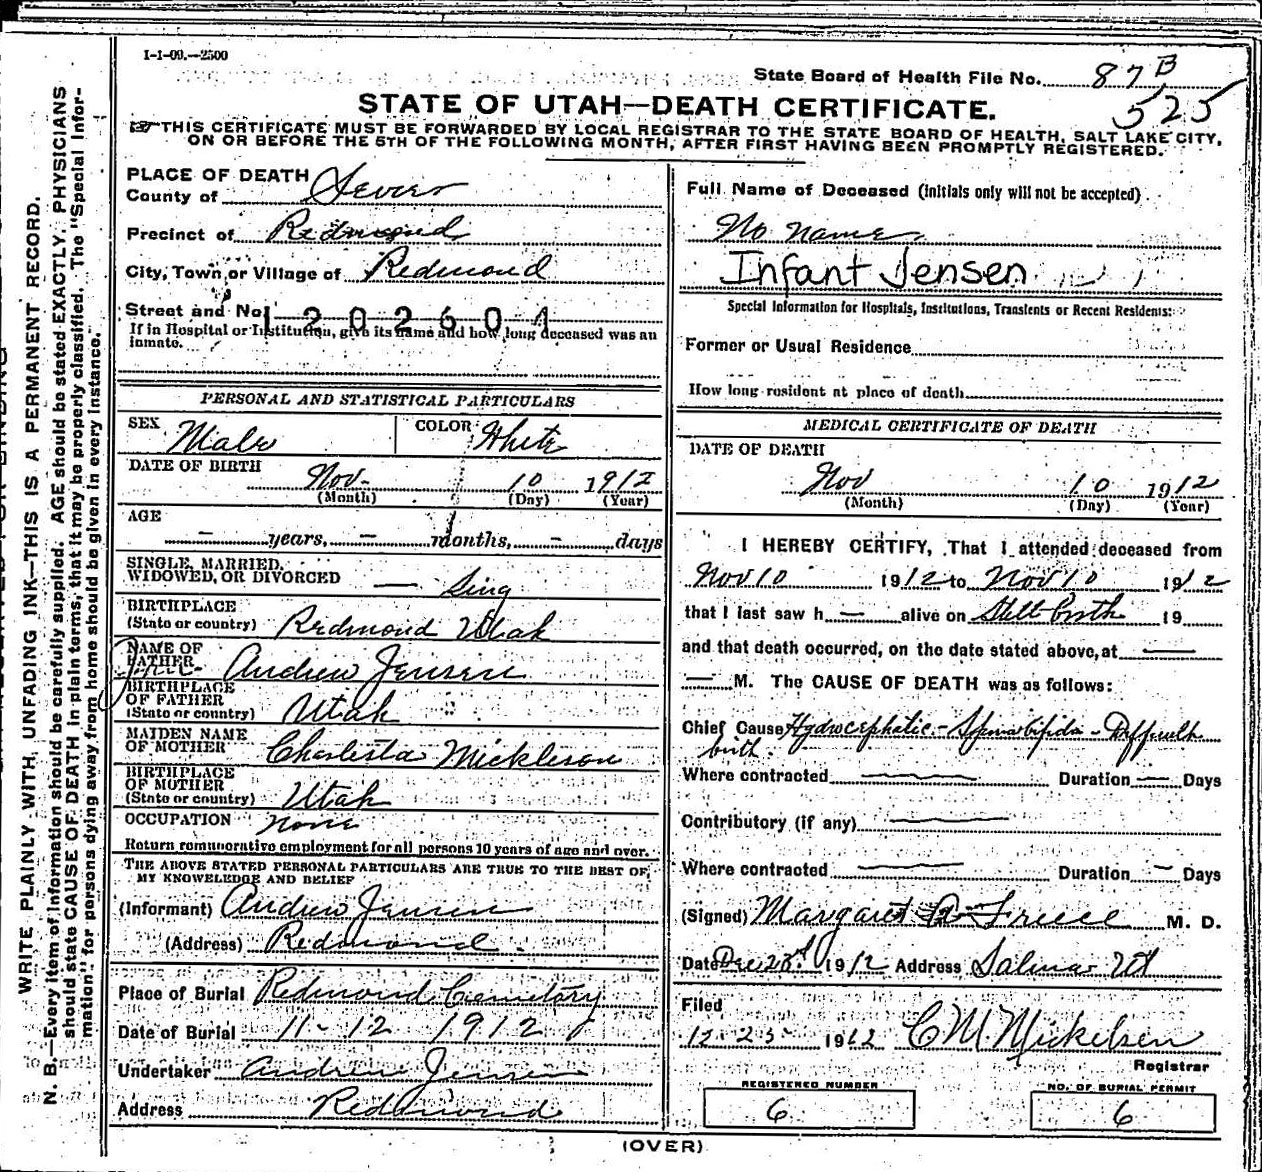 1-1-09.—2500
State Board of Health File No. 87 B
525
STATE OF UTAH—DEATH CERTIFICATE.
☞THIS CERTIFICATE MUST BE FORWARDED BY LOCAL REGISTRAR TO THE STATE BOARD OF HEALTH, SALT LAKE CITY,
ON OR BEFORE THE 5TH OF THE FOLLOWING MONTH, AFTER FIRST HAVING BEEN PROMPTLY REGISTERED.
WRITE PLAINLY WITH, UNFADING INK—THIS IS A PERMANENT RECORD.
N. B.—Every item of information should be carefully supplied. AGE should be stated EXACTLY. PHYSICIANS
should state CAUSE OF DEATH in plain terms, that it may be properly classified. The "Special Infor-
mation" for persons dying away from home should be given in every instance.
PLACE OF DEATH
County of Sevier
Precinct of Redmond
City, Town or Village of Redmond
Street and No. 1202604
If in Hospital or Institution, give its name and how long deceased was an
inmate.
PERSONAL AND STATISTICAL PARTICULARS
SEX Male COLOR White
DATE OF BIRTH
Nov. 10 1912
(Month) (Day) (Year)
AGE
— years, — months, — days
SINGLE, MARRIED,
WIDOWED, OR DIVORCED — Sing
BIRTHPLACE
(State or country) Redmond Utah
NAME OF
FATHER Andrew Jensen
BIRTHPLACE
OF FATHER
(State or country) Utah
MAIDEN NAME
OF MOTHER Charlesta Mickleson
BIRTHPLACE
OF MOTHER
(State or country) Utah
OCCUPATION None
Return remunerative employment for all persons 10 years of age and over.
THE ABOVE STATED PERSONAL PARTICULARS ARE TRUE TO THE BEST OF
MY KNOWLEDGE AND BELIEF
(Informant) Andrew Jensen
(Address) Redmond
Place of Burial Redmond Cemetary
Date of Burial 11-12 1912
Undertaker Andrew Jensen
Address Redmond
Full Name of Deceased (initials only will not be accepted)
No name
Infant Jensen
Special Information for Hospitals, Institutions, Transients or Recent Residents:
Former or Usual Residence
How long resident at place of death
MEDICAL CERTIFICATE OF DEATH
DATE OF DEATH
Nov 10 1912
(Month) (Day) (Year)
I HEREBY CERTIFY, That I attended deceased from
Nov 10 1912 to Nov 10 1912
that I last saw h — alive on Still birth 19
and that death occurred, on the date stated above, at —
— M. The CAUSE OF DEATH was as follows:
Chief Cause Hydrocephalic - Spina bifida - Difficult
birth.
Where contracted — Duration — Days
Contributory (if any) —
Where contracted — Duration — Days
(Signed) Margaret R. Freece M. D.
Date Dec 23d 1912 Address Salina Ut
Filed
12-25 1912 C M Mickelsen
Registrar
REGISTERED NUMBER
6
NO. OF BURIAL PERMIT
6
(OVER)